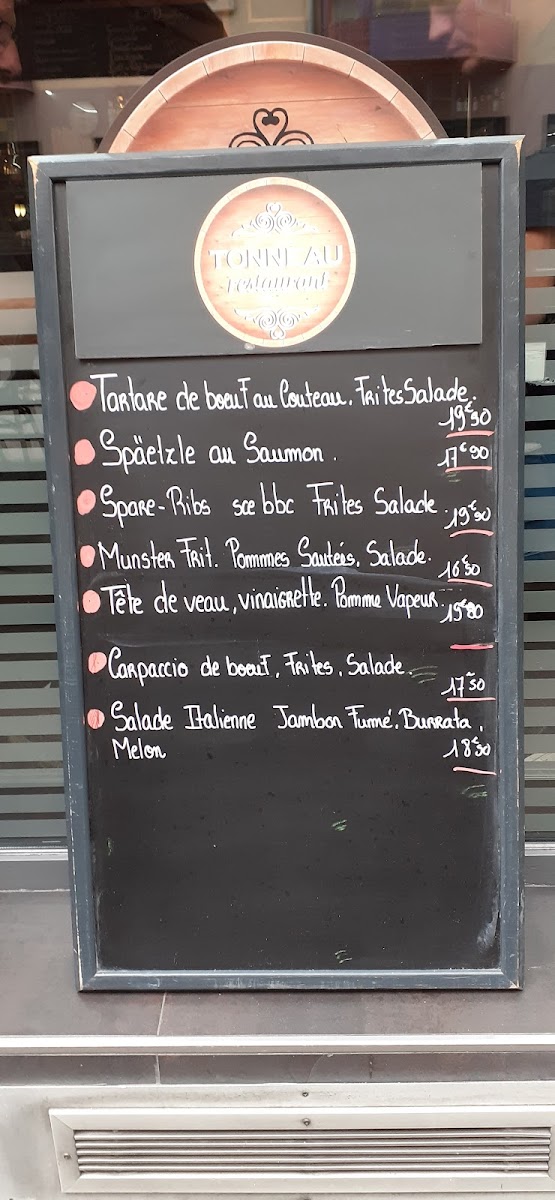 TONNEAU
restaurant
Tartare de boeuf au Couteau. Frites Salade.
19€90
Späetzle au Saumon.
17€90
Spare-Ribs sce bbc Frites Salade.
19€90
Munster Frit. Pommes Sautées, Salade.
16€50
Tête de veau, vinaigrette. Pomme Vapeur.
Carpaccio de boeuf, Frites, Salade.
17€50
Salade Italienne Jambon Fumé. Burrata,
Melon
18€50